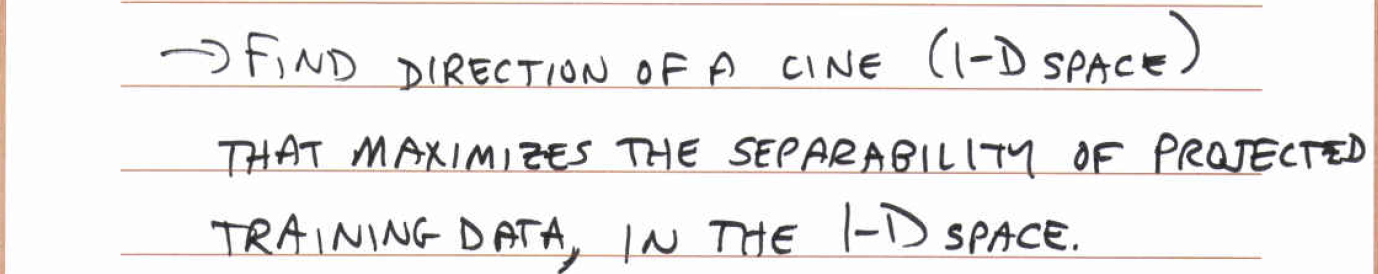 → FIND DIRECTION OF A LINE (1-D SPACE)
THAT MAXIMIZES THE SEPARABILITY OF PROJECTED
TRAINING DATA, IN THE 1-D SPACE.